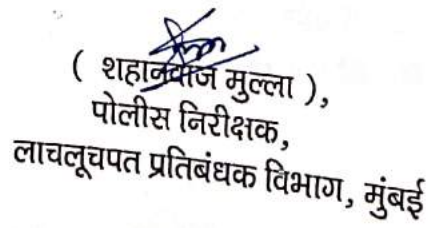 ( शहानवाज मुल्ला ),
पोलीस निरीक्षक,
लाचलूचपत प्रतिबंधक विभाग, मुंबई